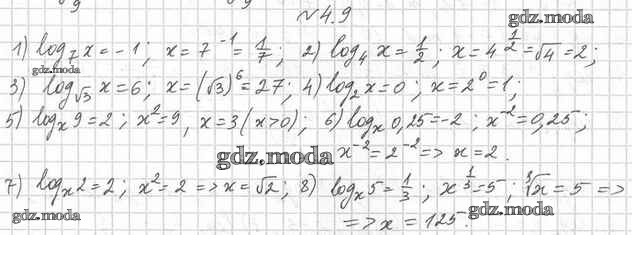 №4.9
gdz.moda
1) log₇ x = -1; x = 7⁻¹ = 1/7; 2) log₄ x = 1/2; x = 4^(1/2) = √4 = 2;
gdz.moda
3) log_√3 x = 6; x = (√3)⁶ = 27; 4) log₂ x = 0; x = 2⁰ = 1;
5) logₓ 9 = 2; x² = 9, x = 3 (x>0); 6) logₓ 0,25 = -2; x⁻² = 0,25;
gdz.moda x⁻² = 2⁻² => x = 2.
7) logₓ 2 = 2; x² = 2 => x = √2; 8) logₓ 5 = 1/3; x^(1/3) = 5; ³√x = 5 =>
=> x = 125.
gdz.moda